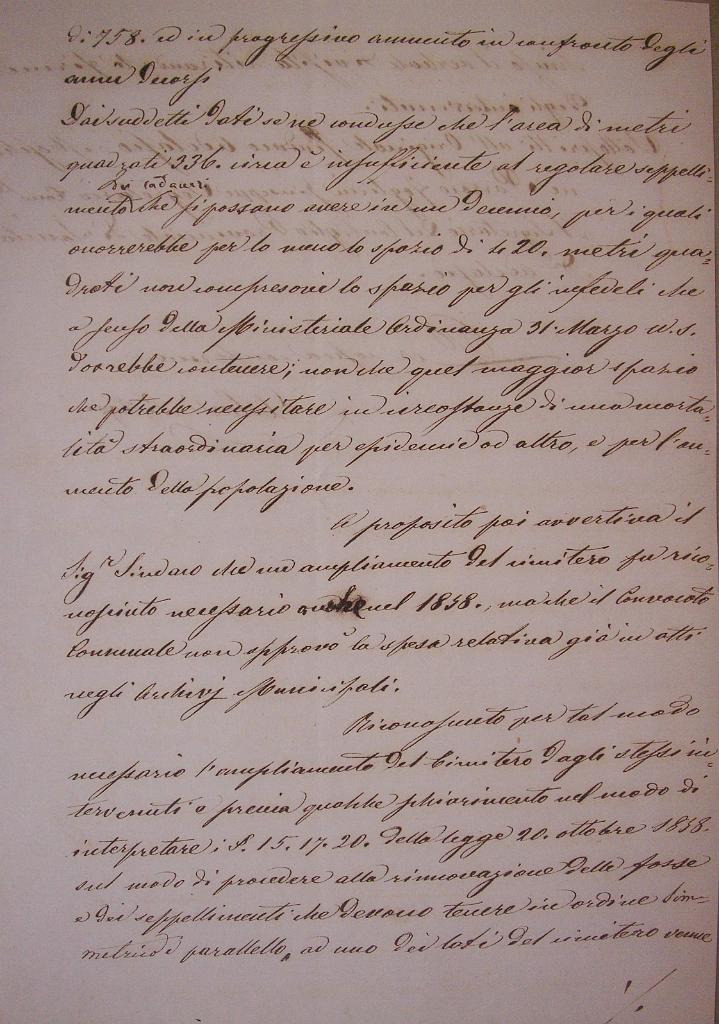 di 758. ed in progressivo aumento in confronto degli
anni decorsi
Dai suddetti dati se ne condusse che l'area di metri
quadrati 236. circa è insufficiente al regolare seppelli-
dei cadaveri
mento che si possano avere in un decennio, per i quali
occorrerebbe per lo meno lo spazio di 420. metri qua-
drati non compresovi lo spazio per gli infedeli che
a senso della Ministeriale Ordinanza 31 Marzo a. s.
dovrebbe contenere; non che quel maggior spazio
che potrebbe necessitare in circostanze di una morta-
lità straordinaria per epidemie od altro, e per l'au-
mento della popolazione.
A proposito poi avvertiva il
Sigr Sindaco che un ampliamento del cimitero fu rico-
nosciuto necessario anche nel 1858., ma che il Convocato
Comunale non approvò la spesa relativa già in atti
negli Archivj Municipali.
Riconosciuto per tal modo
necessario l'ampliamento del Cimitero dagli stessi in-
tervenuti e previa qualche schiarimento nel modo di
interpretare i §. 15. 17. 20. della legge 20. ottobre 1858.
sul modo di procedere alla rinnovazione delle fosse
e dei seppellimenti che devono tenere in ordine sim-
metrico e parallello, ad uno dei lati del cimitero venne